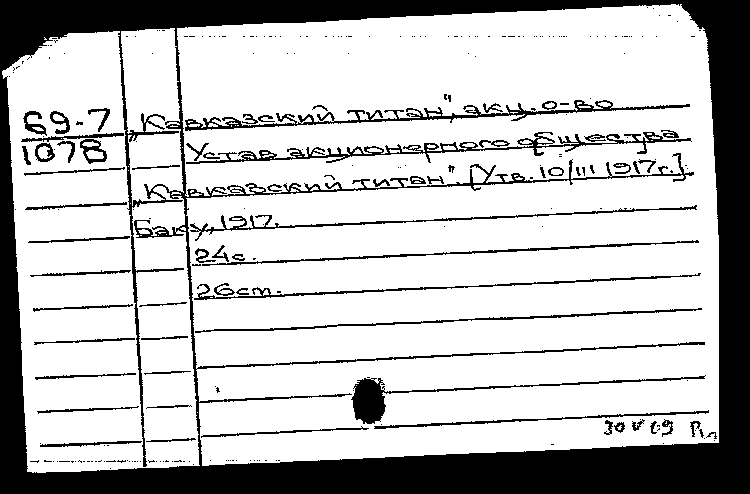 69-7 „Кавказский титан", акц. о-во
1078 Устав акционерного о[бществ]а
„Кавказский титан". [Утв. 10/III 1917г.]
Баку, 1917.
24с.
26cm.
30 V 69